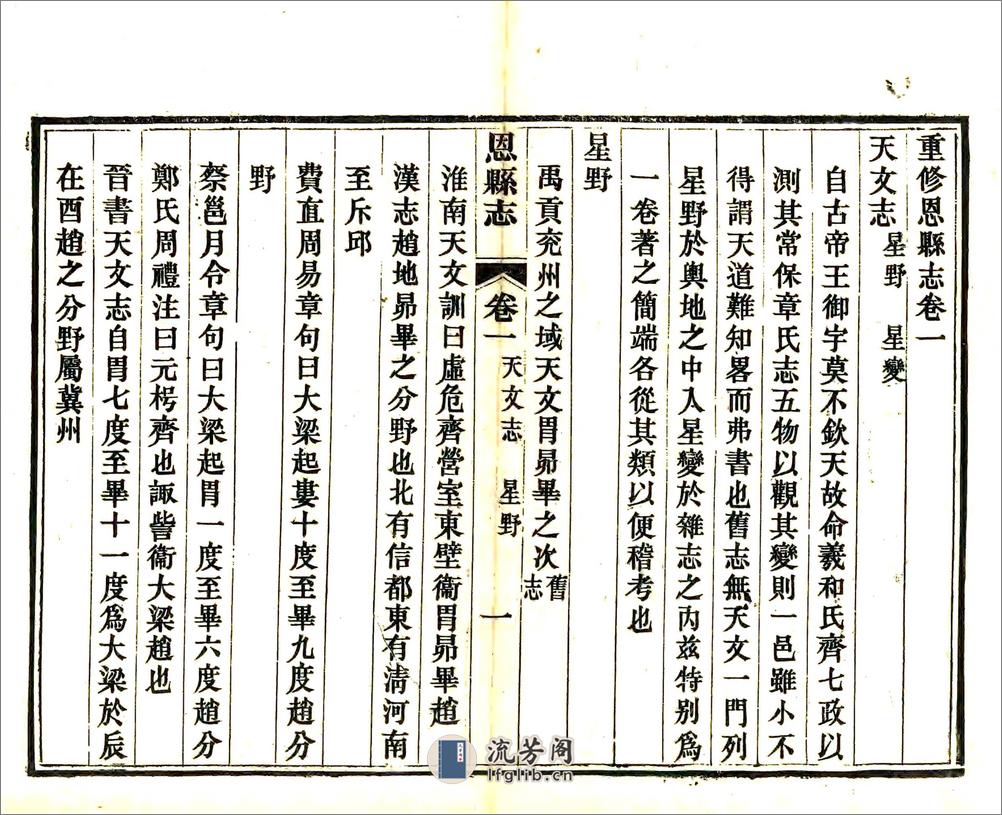 重修恩縣志卷一
天文志 星野 星變
自古帝王御宇莫不欽天故命羲和氏齊七政以
測其常保章氏志五物以觀其變則一邑雖小不
得謂天道難知畧而弗書也舊志無天文一門列
星野於輿地之中入星變於雜志之內兹特别爲
一卷著之簡端各從其類以便稽考也
星野
禹貢兖州之域天文胃昴畢之次舊志
恩縣志 卷一 天文志 星野 一
淮南天文訓曰虛危齊營室東壁衞胃昴畢趙
漢志趙地昴畢之分野也北有信都東有淸河南
至斥邱
費直周易章句曰大梁起婁十度至畢九度趙分
野
蔡邕月令章句曰大梁起胃一度至畢六度趙分
鄭氏周禮注曰元枵齊也諏訾衞大梁趙也
晉書天文志自胃七度至畢十一度爲大梁於辰
在酉趙之分野屬冀州
流芳阁
lfglib.cn